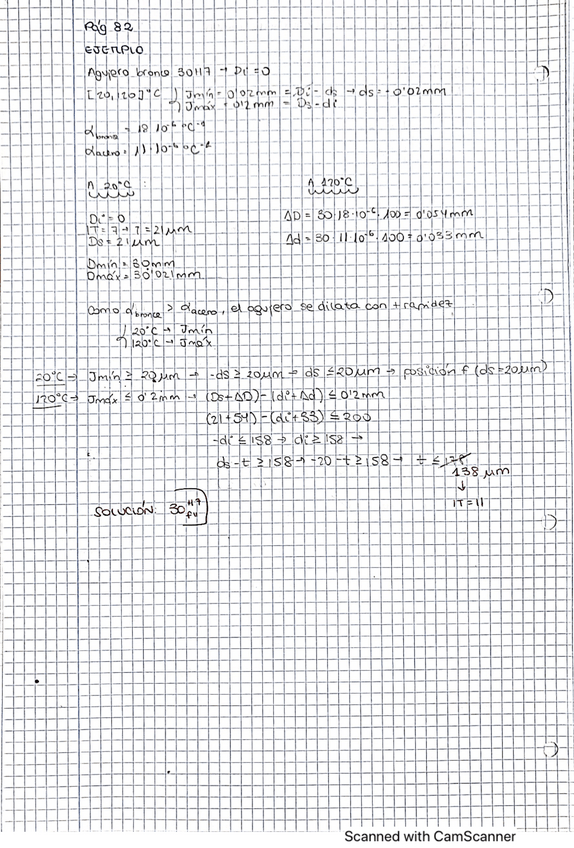 Pág 82
EJEMPLO
Agujero bronce 30H7 → Di = 0
[20,120]°C } Jmín = 0'02mm = Di - ds → ds = -0'02mm
Jmáx = 0'2mm = Ds - di
αbronce = 18·10⁻⁶ °C⁻¹
αacero = 11·10⁻⁶ °C⁻¹
A 20°C :
A 120°C
Di = 0
IT = 7 → T = 21 μm
Ds = 21 μm
Dmín = 30mm
Dmáx = 30'021mm
ΔD = 30·18·10⁻⁶·100 = 0'054mm
Δd = 30·11·10⁻⁶·100 = 0'033mm
Como αbronce > αacero, el agujero se dilata con + rapidez
20°C → Jmín
120°C → Jmáx
20°C → Jmín ≥ 20μm → -ds ≥ 20μm → ds ≤ 20μm → posición f (ds = 20μm)
120°C → Jmáx ≤ 0'2mm → (Ds+ΔD) - (di+Δd) ≤ 0'2mm
(21+54) - (di+33) ≤ 200
-di ≤ 158 → di ≥ 158 →
ds - t ≥ 158 → -20 - t ≥ 158 → t ≤
138 μm
↓
IT = 11
SOLUCIÓN: 30 H7
f11
Scanned with CamScanner